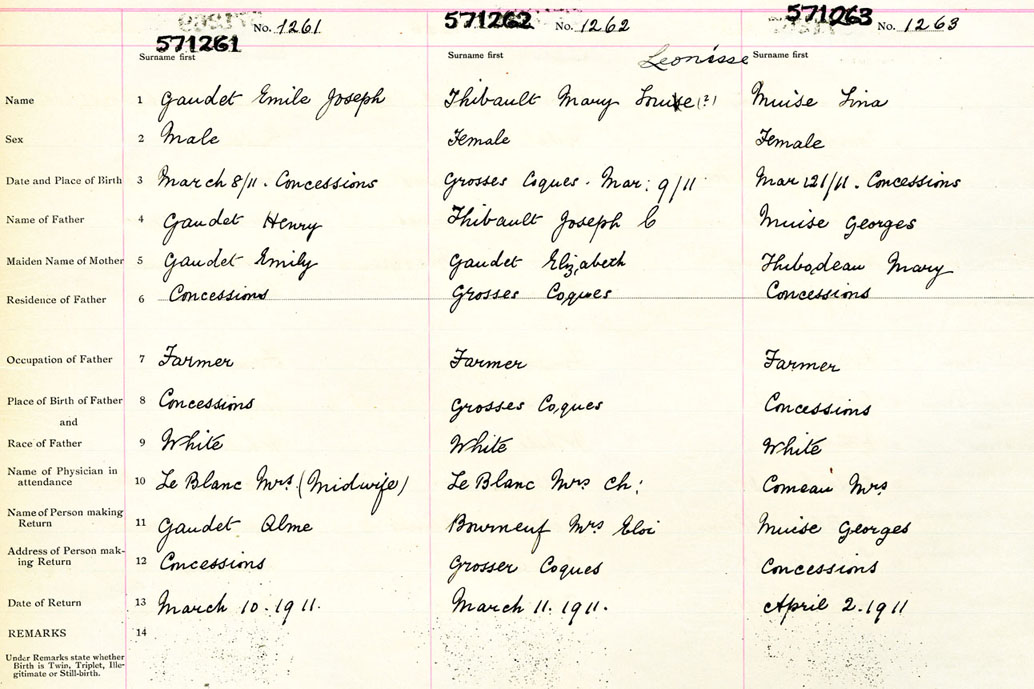 571261 No. 1261 571262 No. 1262 571263 No. 1263
Surname first Surname first Leonisse Surname first
Name 1 Gaudet Emile Joseph Thibault Mary Louise (?) Muise Lina
Sex 2 Male Female Female
Date and Place of Birth 3 March 8/11. Concessions Grosses Coques. Mar: 9/11 Mar 121/11. Concessions
Name of Father 4 Gaudet Henry Thibault Joseph C Muise Georges
Maiden Name of Mother 5 Gaudet Emily Gaudet Elizabeth Thibodeau Mary
Residence of Father 6 Concessions Grosses Coques Concessions
Occupation of Father 7 Farmer Farmer Farmer
Place of Birth of Father 8 Concessions Grosses Coques Concessions
and
Race of Father 9 White White White
Name of Physician in
attendance 10 Le Blanc Mrs. (Midwife) Le Blanc Mrs Ch: Comeau Mrs
Name of Person making
Return 11 Gaudet Alme Bourneuf Mrs Eloi Muise Georges
Address of Person mak-
ing Return 12 Concessions Grosser Coques Concessions
Date of Return 13 March 10. 1911. March 11. 1911. April 2. 1911
REMARKS 14
Under Remarks state whether
Birth is Twin, Triplet, Ille-
gitimate or Still-birth.